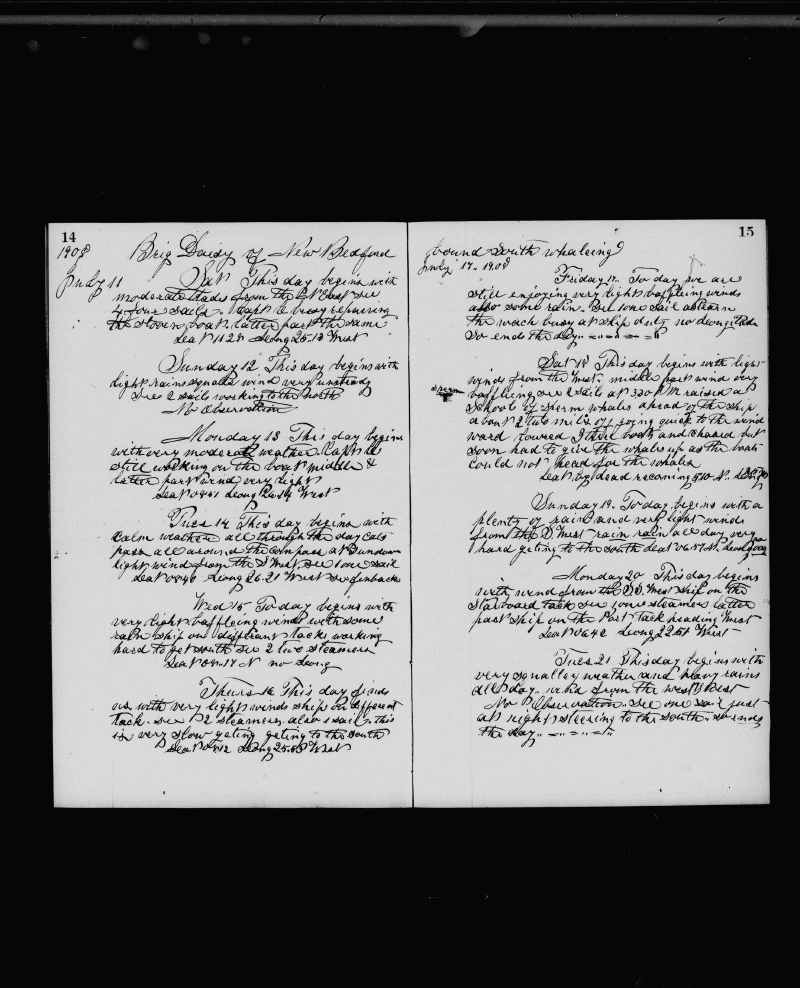 14
1908 Brig Daisy of New Bedford
July 11 Sat This day begins with
moderate trades from the Nt East see
4 four sails. Capt busy repairing
the stoven boat. latter part the same
Leat 11 28 Leong 25-13 West
Sunday 12 This day begins with
light rains squals wind very unsteady
See 2 sails working to the north
No Observation
Monday 13 This day begins
with very moderate weather. Capt
still working on the boat middle &
latter part wind very light
Leat Leong West
Tues 14 This day begins with
calm weather all through the day Cats
paw all around the compass at Sundown
light wind from the S West see 1 one sail
Leat Leong 26-21 West see finbacks
Wed 15 To day begins with
very light baffleing winds with some
rain ship on different tacks working
hard to get south see 2 two steamers
Leat N no Leong
Thurs 16 This day finds
us with very light winds ship on different
tack. see 2 steamers. also 1 sail. this
is very slow geting geting to the south
Leat Leong 25.53 West
15
bound South whaleing
July 17. 1908
Friday 17. To day we are
still enjoying very light baffleing winds
also some rain. See one sail astearn
the wach busy at ship duty no Leongitude
So ends the day
Sat 18 This day begins with light
winds from the West. middle part wind very
sperm
baffleing see 2 sails at 3,30 P.M. raised a
School of sperm whales ahead of the ship
about 2 two mile off going quick to the wind
ward lowered 3 three boats and chased but
soon had to give the whales up as the boats
could not head for the whales
Leat by dead reconing 5 10 N. Leong
Sunday 19. To day begins with a
plenty of rain and very light winds
from the S West rain rain all day very
hard geting to the south Leat 06.57 N. Leong
Monday 20 This day begins
with wind from the S.S. West ship on the
Starboard tack see four steamers latter
part ship on the Port tack heading West
Leat 06 42 Leong 22.51 West
Tues 21 This day begins with
very squalley weather and heavy rains
all day. wind from the west S West
No Observation. see one sail just
at night steering to the south. so ends
the day